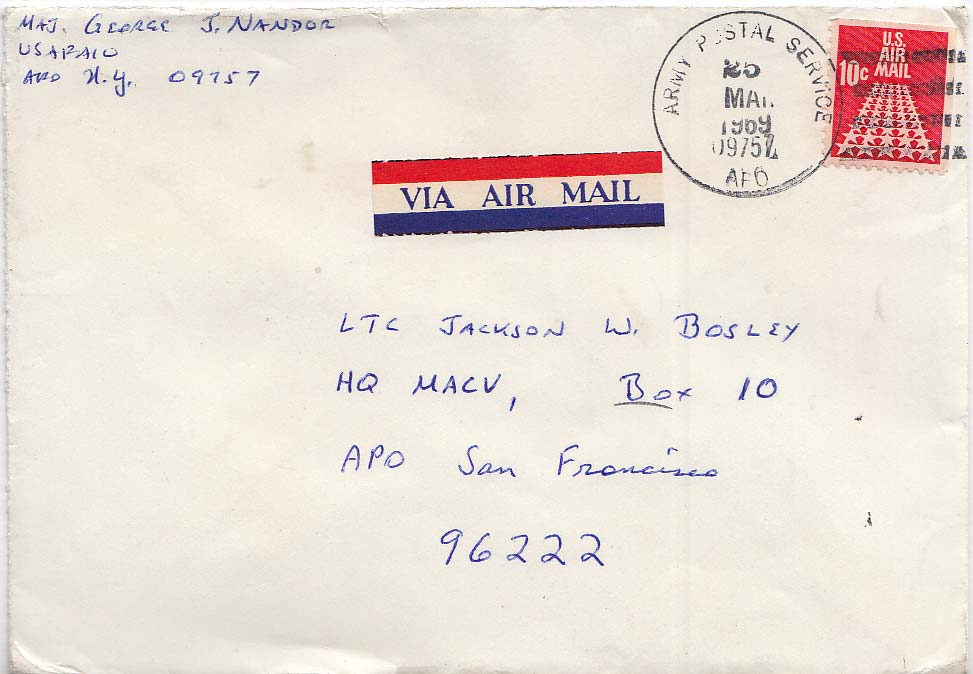 MAJ. GEORGE J. NANDOR
USAPAIO
APO N.Y. 09757
ARMY POSTAL SERVICE
25
MAR
1969
09757
APO
U.S.
AIR
MAIL
10c
VIA AIR MAIL
LTC JACKSON W. BOSLEY
HQ MACV, Box 10
APO San Francisco
96222